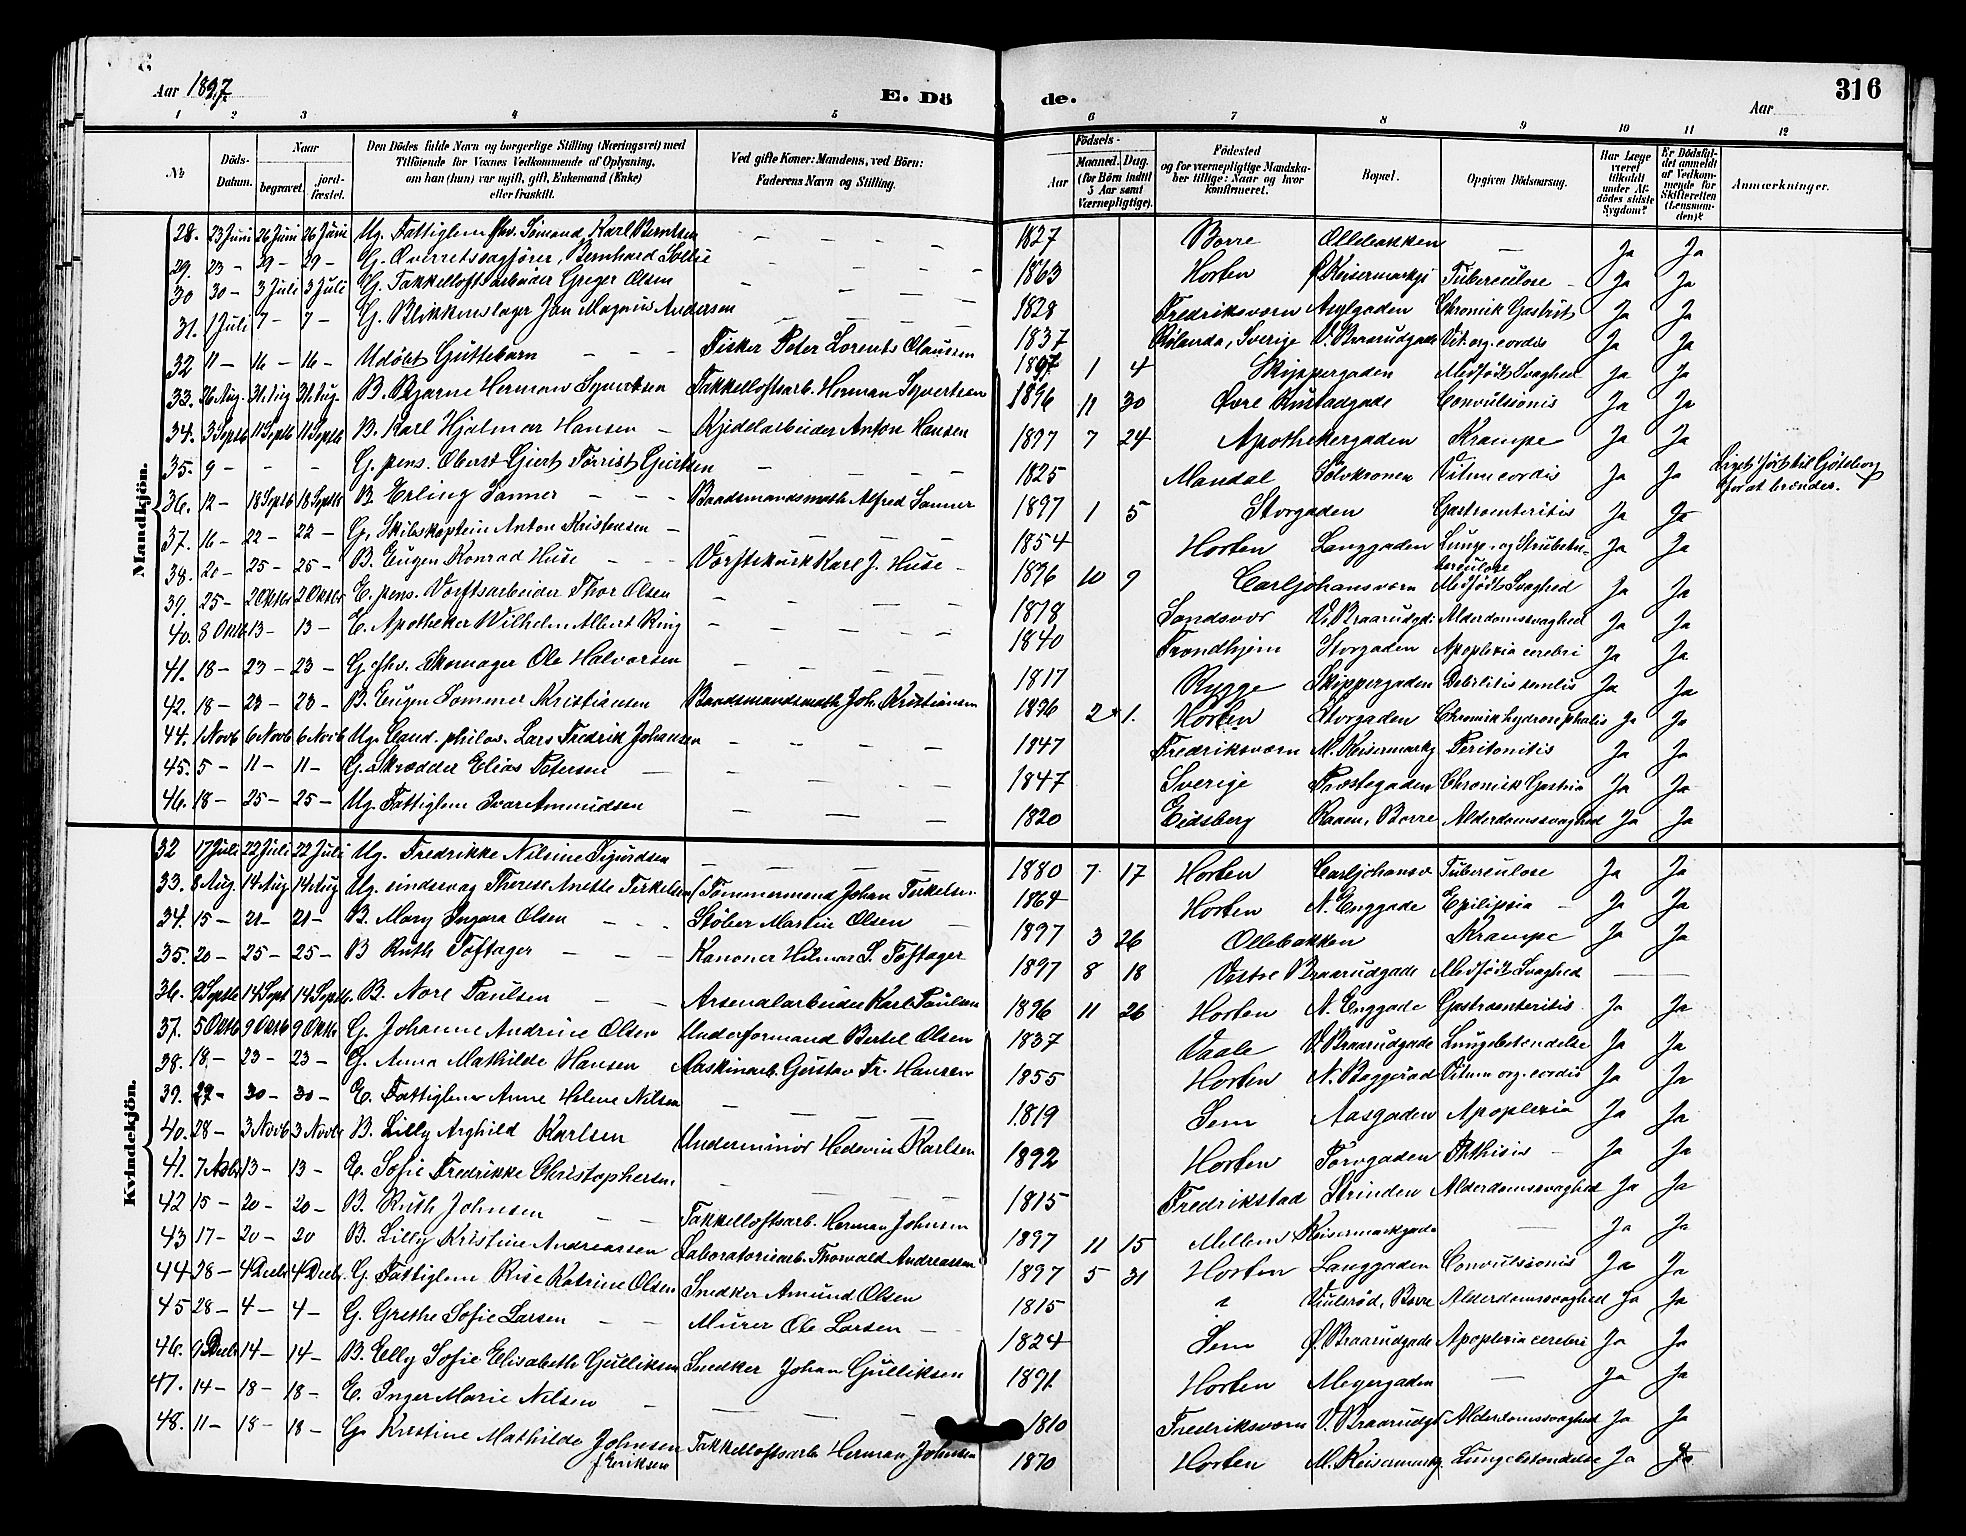 Aar 1897. E. Dö de. Aar 316
1 2 3 4 5 6 7 8 9 10 11 12
No Döds-Datum. Naar begravet. jord-fæstet. Den Dödes fulde Navn og borgerlige Stilling (Næringsvei) med Tilföiende for Voxnes Vedkommende af Oplysning, om han (hun) var ugift, gift, Enkemand (Enke) eller fraskilt. Ved gifte Koner: Mandens, ved Börn: Faderens Navn og Stilling. Födsels- Aar Maaned. Dag. (for Börn indtil 5 Aar samt Værnepligtige). Födested og for værnepligtige Mandska-ber tillige: Naar og hvor konfirmeret. Bopæl. Opgiven Dödsaarsag. Har Læge været tilkaldt under Af-dödes sidste Sygdom? Er Dödsfal-det anmeldt af Vedkom-mende for Skifteretten (Lensman-den)? Anmærkninger.
Mandkjön.
28. 23 Juni 26 Juni 26 Juni Ug. Fattiglem fhv. Sömand Karl Berntsen – – – 1827 Borre Ollebakken – Ja Ja
29. 23 – 29 – 29 – G. Overretssagförer, Bernhard – – – 1863 Horten Keisermarkgd Tuberculose – Ja Ja
30 30 – 3 Juli 3 Juli G. Takkelloftsarbeider Greger Olsen – – – 1828 Fredriksværn Asylgaden Chronisk Gastrit Ja Ja
31. 1 Juli 7 – 7 – G. Blikkenslager Jan Magnus Andersen – – – 1837 Rölanda, Sverige V. Braarudgade Vit. org. cordis Ja Ja
32 11 – 16 – 16 – Udöbt Guttebarn – – – Fisker Peter Lorents Olaussen 1897 1 4 Skippergaden Medfödt Svaghed Ja Ja
33. 26 Aug. 31 Aug 31 Aug. B. Bjarne Herman Syvertsen Takkelloftsarb. Herman Syvertsen 1896 11 30 Övre Rustadgade Convulsionis Ja Ja
34. 3 Septb 11 Septb 11 Septb B. Karl Hjalmar Hansen – Kjedelarbeider Anton Hansen 1897 7 24 Apothekergaden Krampe Ja Ja
35. 9 – – – G. pens. Oberst Giert Torrist Geirtsen – – – 1825 Mandal Sölvkronen Vitium cordis Ja Ja Liget fört til Göteborg for at brændes.
36. 12 – 18 Septb 18 Septb B. Erling Sanner – – – Baadsmandsmath Alfred Sanner 1897 1 5 Storgaden Gastroenteritis Ja Ja
37. 16 – 22 – 22 – G. Skibskaptein Anton Kristensen – – – 1854 Horten Langgaden Lunge- og Strubetu-berculose Ja Ja
38. 20 – 25 – 25 – B. Eugen Konrad Huse – – – Værftskusk Karl J. Huse – 1896 10 9 Carljohansværn Medfödt Svaghed Ja Ja
39. 25 – 2 Oktbr 2 Oktbr E. pens. Værftsarbeider Thor Olsen – – – 1818 Sandsvær V. Braarudgd. Alderdomssvaghed Ja Ja
40. 8 Oktb 13 – 13 – E. Apotheker Wilhelm Albert Ring – – – 1840 Trondhjem Storgaden Apoplexia cerebri Ja Ja
41. 18 – 23 – 23 – G. fhv. Skomager Ole Halvorsen – – – 1817 Rygge Skippergaden Debilitis senilis Ja Ja
42. 18 – 23 – 23 – B. Eugen Sommer Kristiansen Baadsmandsmath Joh. Kristiansen 1896 2 1. Horten Storgaden Chronisk hydrosephalis Ja Ja
44. 1 Novb 6 Novb 6 Novb Ug. Cand. philos. Lars Fredrik Johansen – – – 1847 Fredriksværn M. Keisermarkg Peritonitis Ja Ja
45. 5 – 11 – 11 – G. Skrædder Elias Petersen – – – 1847 Sverige Præstegaden Chronisk Gastria Ja Ja
46. 18 – 25 – 25 – Ug. Fattiglem Ivar Amundsen – – – 1820 Eidsberg Raaen, Borre Alderdomssvaghed Ja Ja
Kvindekjön.
32 17 Juli 22 Juli 22 Juli Ug. Fredrikke Nilsine Sigurdsen – – – 1880 7. 17 Horten Carljohansv. Tuberculose Ja Ja
33. 8 Aug. 14 Aug 14 Aug Ug. sindssvag Therese Anette Terkelsen (Tömmermand Johan Terkelsen 1864 Horten N. Enggade Epilipsia – Ja Ja
34. 15 – 21 – 21 – B. Mary Ingara Olsen – – – Stöber Martin Olsen – 1897 3 26 Ollebakken Krampe Ja Ja
35. 20 – 25 – 25 – B Ruth Toftager – – – Kanoner Hilmar S. Toftager 1897 8 18 Vestre Braarudgade Medfödt Svaghed – –
36. 9 Septb 14 Sept 14 Septb. B. Nore Paulsen – – Arsenalarbeider Karl Paulsen 1896 11 26 Horten N. Enggade Gastroenteritis Ja Ja
37. 5 Oktb 9 Oktb 9 Oktb G. Johanne Andrine Olsen Underformand Bertel Olsen 1837 Vaale V. Braarudgade Lungebetændelse Ja Ja
38. 18. – 23 – 23 – G. Anna Mathilde Hansen Maskinarb. Gustav Fr. Hansen 1855 Horten N. Baggerød Vitium org. cordis Ja Ja
39. 27 – 30 – 30 – E. Fattiglem Anne Helene Nilsen – – – 1819 Sem Aasgaden Apoplexia Ja Ja
40. 28 – 3 Novb 3 Novb B. Lilly Arghild Karlsen Underminör Hedevin Karlsen 1892 Horten Torvgaden Phthisis – Ja Ja
41. 7 Novbr 13 – 13 – E. Sofie Fredrikke Christophersen – – – 1815 Fredrikstad Strinden Alderdomssvaghed Ja Ja
42 15 – 20 – 20 – B. Ruth Johnsen – – Takkelloftsarb. Herman Johnsen 1897 11 15 Mellem Keisermarkgade – Ja Ja
43 17 – 20 – 20 B. Lilly Kristine Andreassen Laboratoriearb. Thorvald Andreassen 1897 5 31 Horten Langgaden Convulsionis Ja Ja
44 28 – 4 Decbr 4 Decbr. G. Fattiglem Rise Katrine Olsen Snedker Amund Olsen 1815 Viulsröd, Borre Alderdomssvaghed Ja Ja
45 28 – 4 – 4 – G. Grethe Sofie Larsen – – Murer Ole Larsen – 1824 Sem Ö. Braarudgade Apoplexia cerebri Ja Ja
46. 9 Decbr 14 – 14 – B. Elly Sofie Elisabeth Gulliksen Snedker Johan Gulliksen 1891. Horten Meyergaden – Ja Ja
47. 14 – 18 – 18 – E. Inger Marie Nilsen – – – 1810 Fredriksværn V. Braarudgd Alderdomssvaghed Ja Ja
48. 11 – 18 – 18 – G. Kristine Mathilde Johnsen f. Eriksen Takkelloftsarb Herman Johnsen 1870 Horten M. Keisermarkg. Lungebetændelse Ja Ja